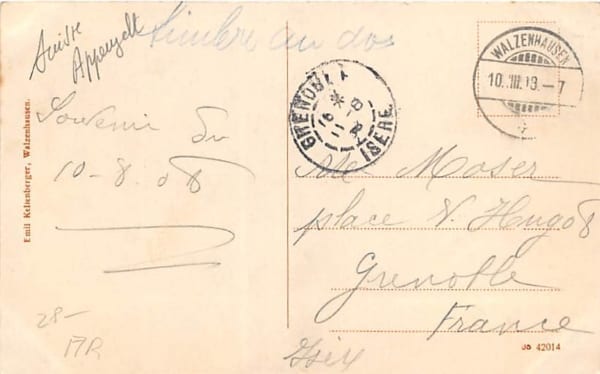 Suisse
Appenzell
timbre au dos
Souvenir du
10-8.08
Emil Kelsenberger, Walzenhausen.
WALZENHAUSEN
10. VIII. 08. – 7
GRENOBLE
ISERE
Mle Moser
place V. Hugo 8
Grenoble
France
Isère
28-
AR
42014